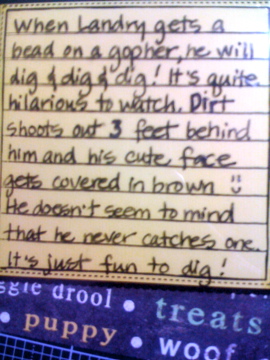 When Landry gets a
bead on a gopher, he will
dig & dig & dig! It's quite
hilarious to watch. Dirt
shoots out 3 feet behind
him and his cute face
gets covered in brown
He doesn't seem to mind
that he never catches one.
It's just fun to dig!
ggie drool • treats
• puppy • woof